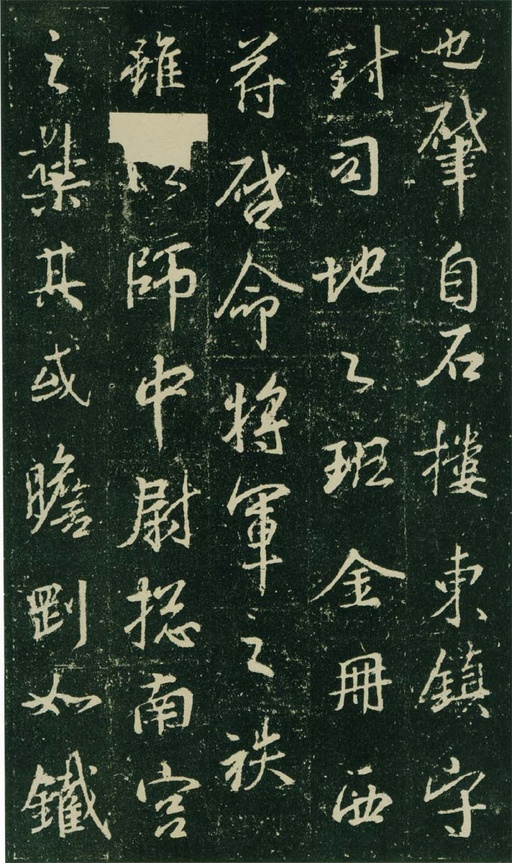 也肇自石樓東鎮守
對司地之班金冊西
苻啓命將軍之袟
雖以師中尉揔南宮
之其或瞻剛如鐵